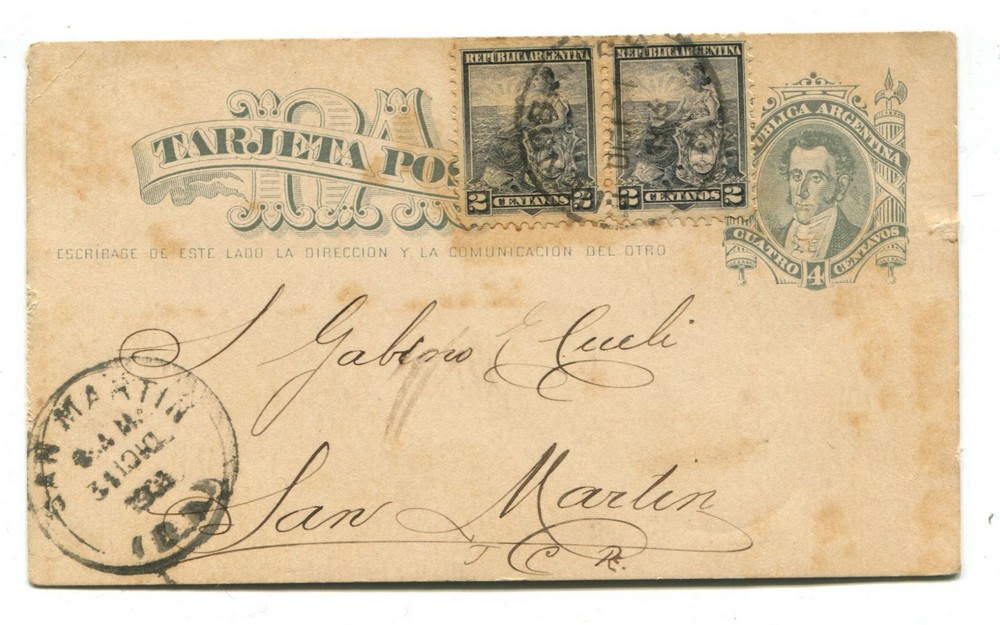 REPUBLICA ARGENTINA
2 CENTAVOS 2
REPUBLICA ARGENTINA
2 CENTAVOS 2
REPUBLICA ARGENTINA
CUATRO 4 CENTAVOS
RA
TARJETA POS
ESCRÍBASE DE ESTE LADO LA DIRECCION Y LA COMUNICACION DEL OTRO
S Gabino E Cueli
San Martin
F C R.
SAN MARTIN
8 A M
31 DIC